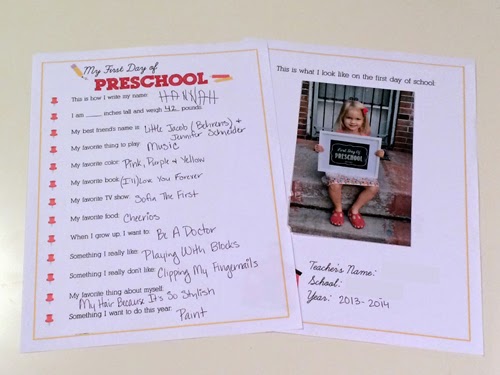 My First Day of
PRESCHOOL
This is how I write my name: HANNAH
I am ____ inches tall and weigh 42 pounds.
My best friend's name is: Little Jacob (Behrens) &
Jennifer Schneider
My favorite thing to play: Music
My favorite color: Pink, Purple & Yellow
My favorite book: (I'll) Love You Forever
My favorite TV show: Sofia The First
My favorite food: Cheerios
When I grow up, I want to: Be A Doctor
Something I really like: Playing With Blocks
Something I really don't like: Clipping My Fingernails
My favorite thing about myself:
My Hair Because It's So Stylish
Something I want to do this year: Paint
This is what I look like on the first day of school:
First Day Of
PRESCHOOL
Teacher's Name:
School:
Year: 2013-2014